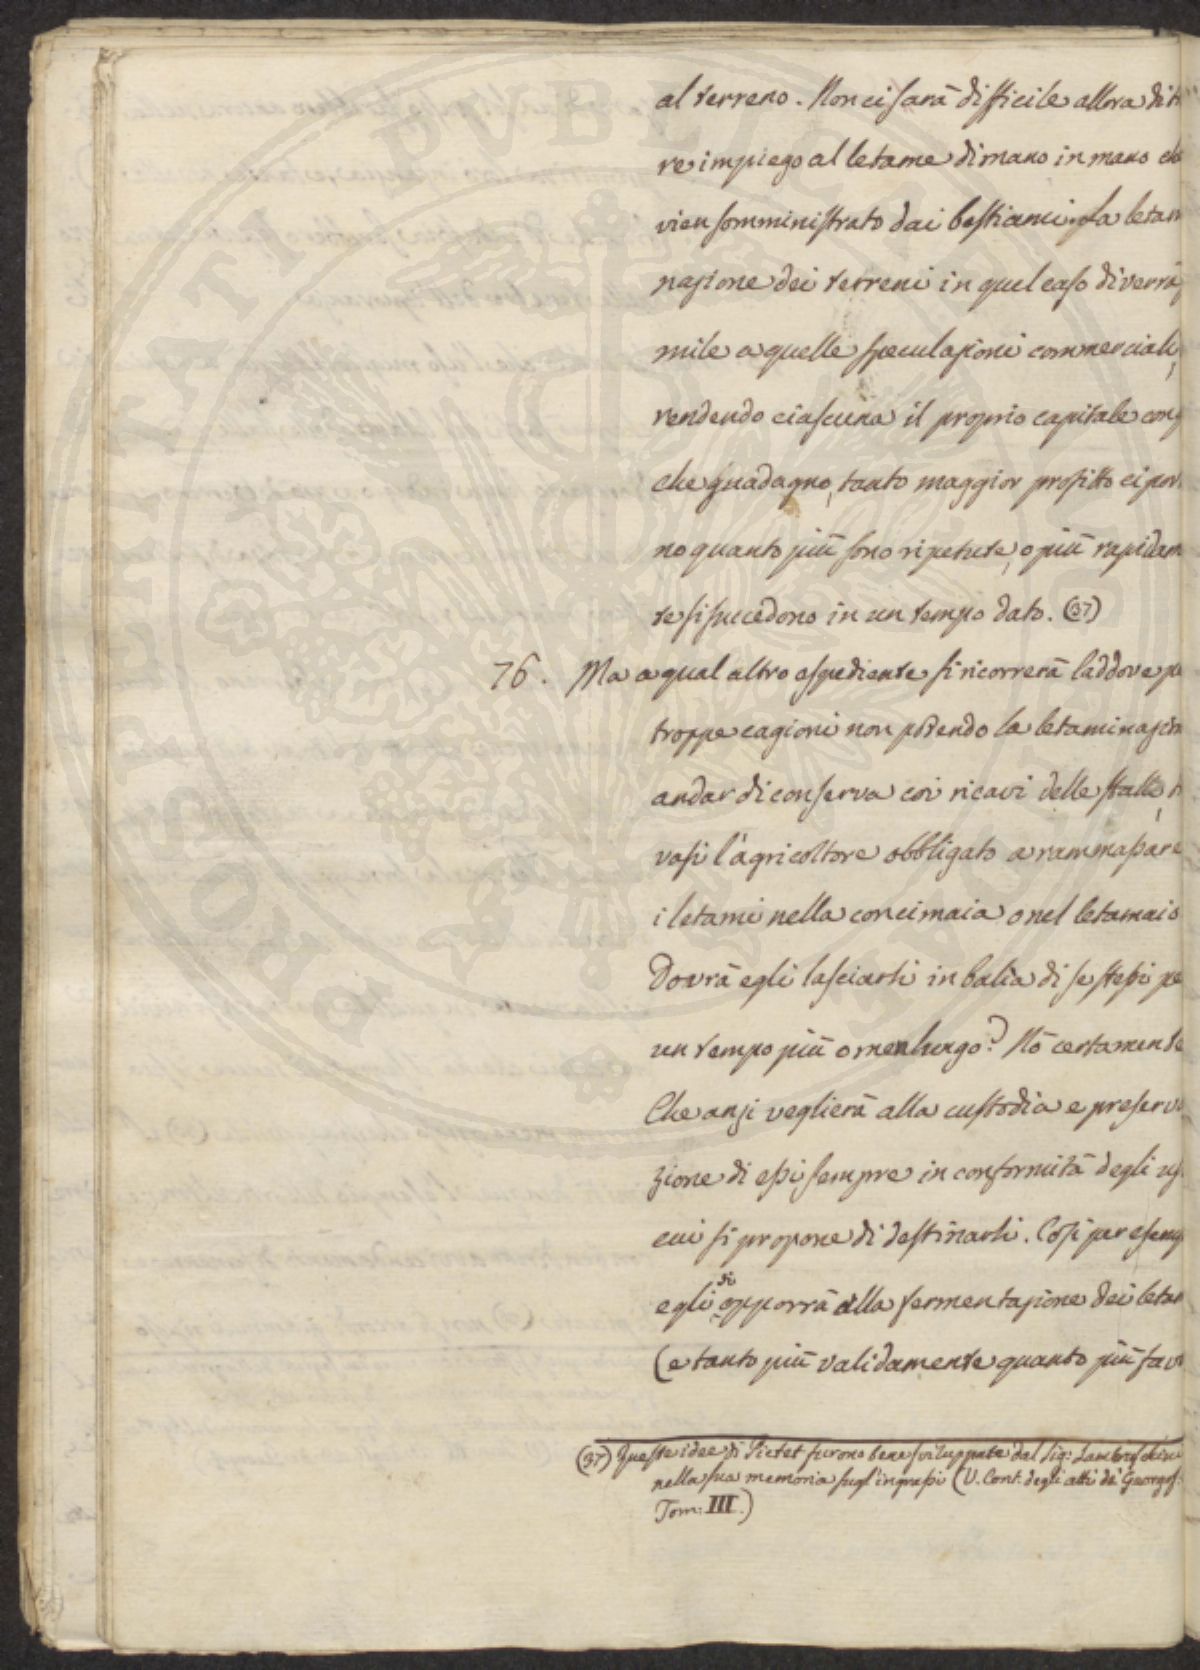 al terreno. Non ci sarà difficile allora di
re impiego al letame di mano in mano che
vien somministrato dai bestiami. La letam
nazione dei terreni in quel caso diverrà
mile a quelle speculazioni commerciali,
rendendo ciascuna il proprio capitale con
che guadagno, tanto maggior profitto ci por
no quanto più sono ripetute, o più rapidam
te si succedono in un tempo dato. (37)
76. Ma a qual altro espediente si ricorrerà laddove p
troppe cagioni non potendo la letaminazion
andar di conserva coi ricavi delle stalle,
vasi l'agricoltore obbligato a rammassare
i letami nella concimaia o nel letamaio
Dovrà egli lasciarli in balia di se stessi pe
un tempo più o men lungo? Nò certamente
Che anzi veglierà alla custodia e preserva
zione di essi sempre in conformità degli us
cui si propone di destinarli. Così per esemp
egli si opporrà alla fermentazione dei letam
(e tanto più validamente quanto più favo
(37) Queste idee di Pictet furono bene sviluppate dal Sig: Lambruschini
nella sua memoria sugl'ingrassi (V. Cont. degli atti de' Georgof:
Tom: III.)
PVBLICAE